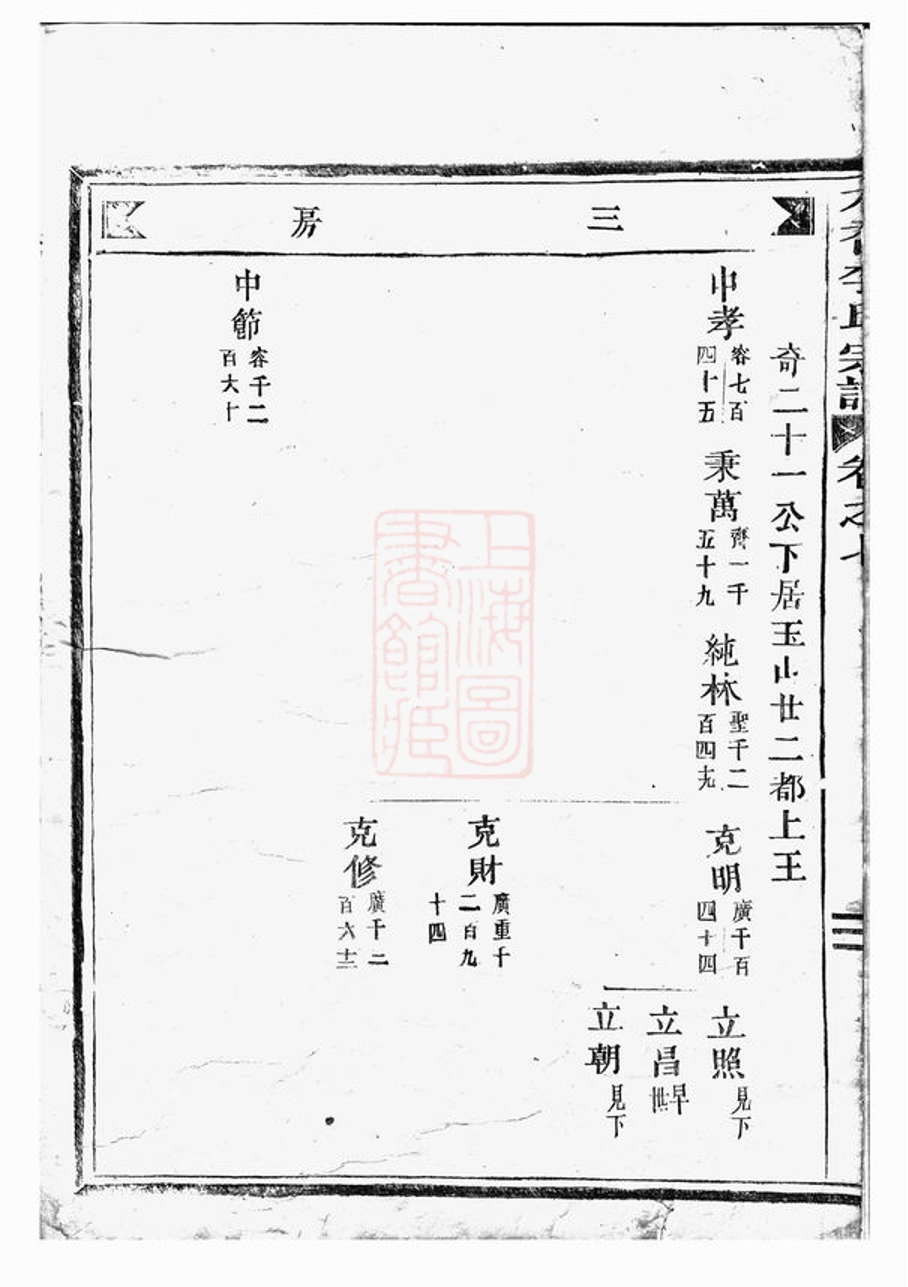 三房
奇二十一公下居玉山廿二都上王
中孝 容七百四十五
秉萬 齊一千五十九
純林 聖千二百四十九
克明 廣千百四十四
立照 見下
立昌 早世
立朝 見下
克財 廣重千二百九十四
克修 廣千二百六十三
中節 容千二百六十
李氏宗譜
卷之七
上海圖書館藏